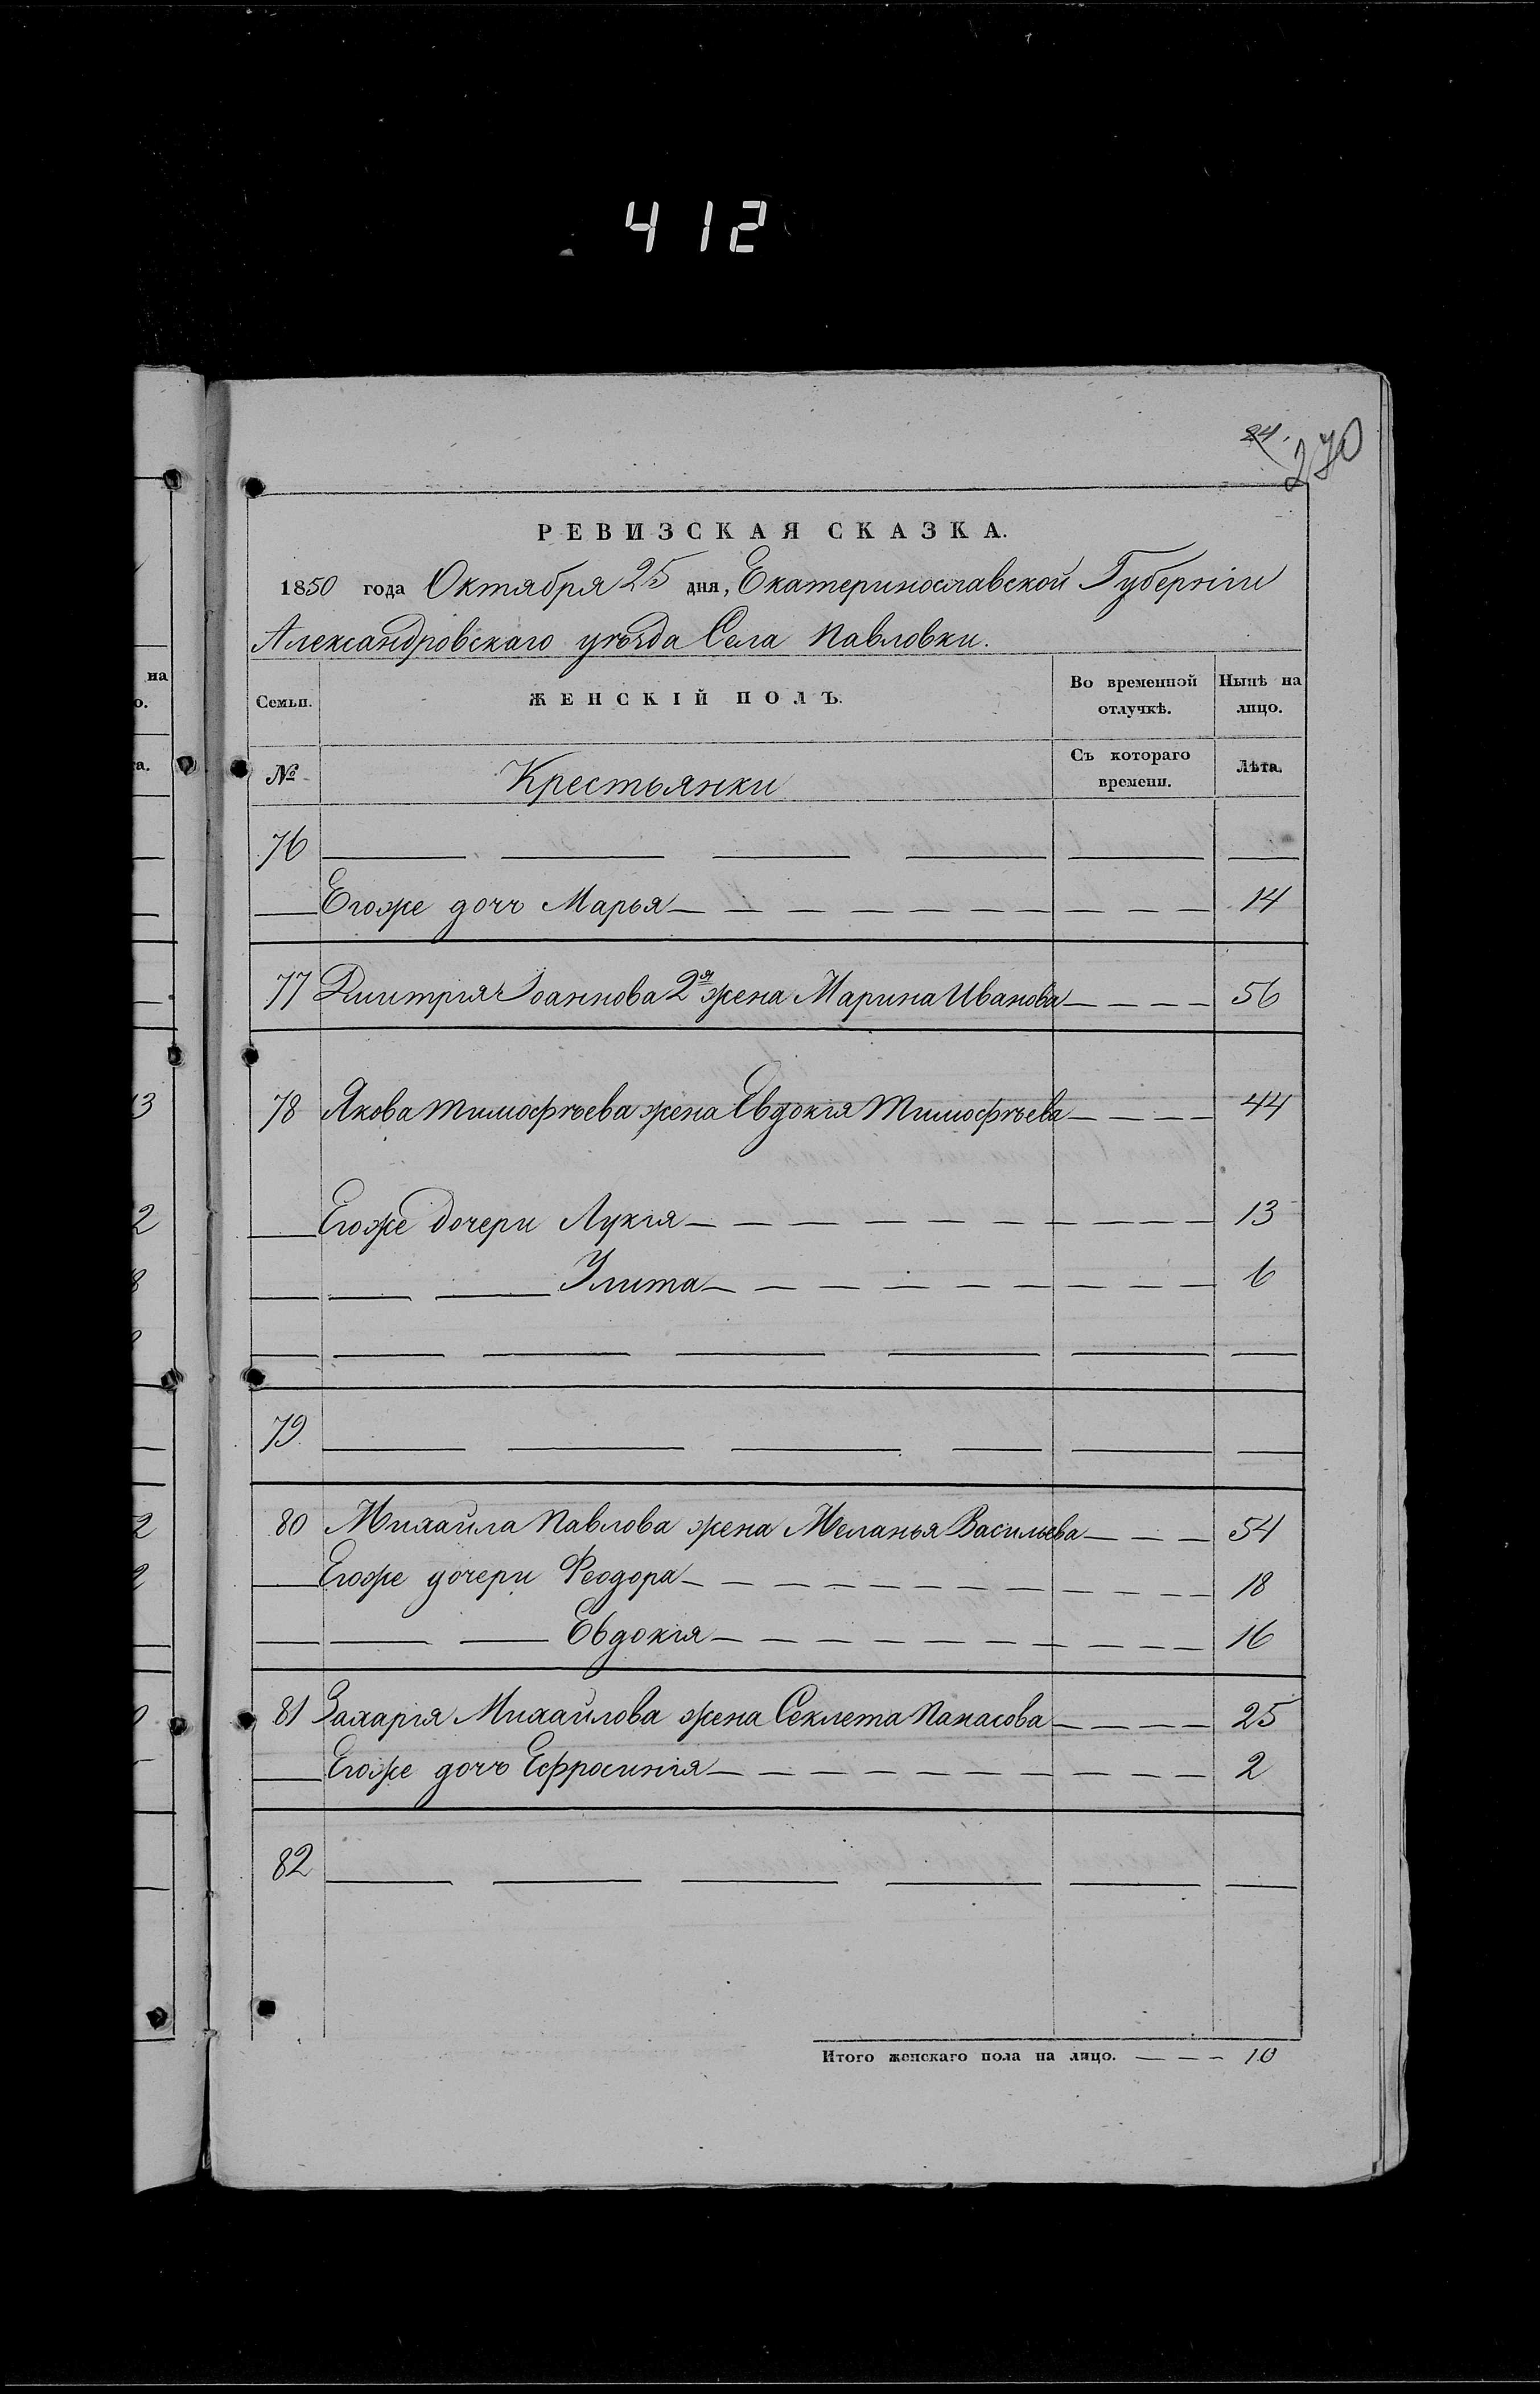 412
24.
270
РЕВИЗСКАЯ СКАЗКА.
1850 года Октября 25 дня, Екатеринославской Губерніи
Александровскаго уѣзда Села Павловки.
Семьи. ЖЕНСКІЙ ПОЛЪ. Во временной отлучкѣ. Нынѣ на лицо.
№ Крестьянки Съ котораго времени. Лѣта.
76
Егоже дочь Марья 14
77 Дмитрія Іоаннова 2я жена Марина Иванова 56
78 Якова Тимофѣева жена Евдокія Тимофѣева 44
Егоже дочери Лукія 13
Улита 6
79.
80 Михайла Павлова жена Меланья Васильева 54
Егоже дочери Феодора 18
Евдокія 16
81 Захарія Михайлова жена Секлета Панасова 25
Егоже дочь Ефросинія 2
82
Итого женскаго пола на лицо. 10